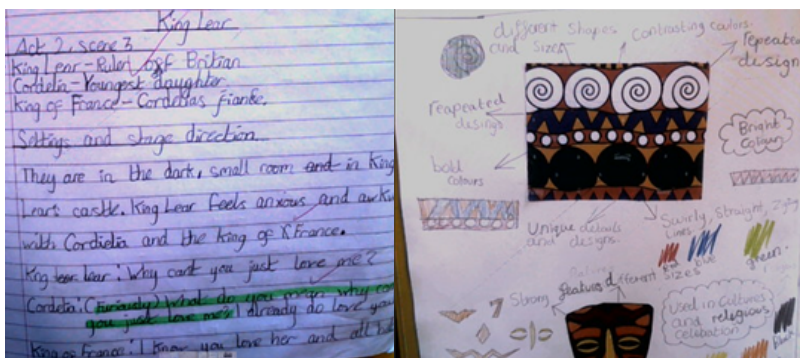 King Lear
Act 2, scene 3
King Lear - Ruler of Britian
Cordelia - Youngest daughter.
King of France - Cordelias fianke.
Settings and stage direction
They are in the dark, small room in King
Lears castle. King Lear feels anxious and
with Cordielia and the king of France.
King lear: Why cant you just love me?
Cordelia: (Furiously) What do you mean why
you just love me? I already do love you
King of France: I know you love her and all
different shapes
and sizes
contrasting colours.
repeated
design
reapeated
design
bold
colours
Bright
Colour
Unique details
and designs.
Swirly, Straight, Zigzag
Lines.
Red
blue
green.
different sizes
Strong features
Used in Cultures
and relegious
celebation
Black